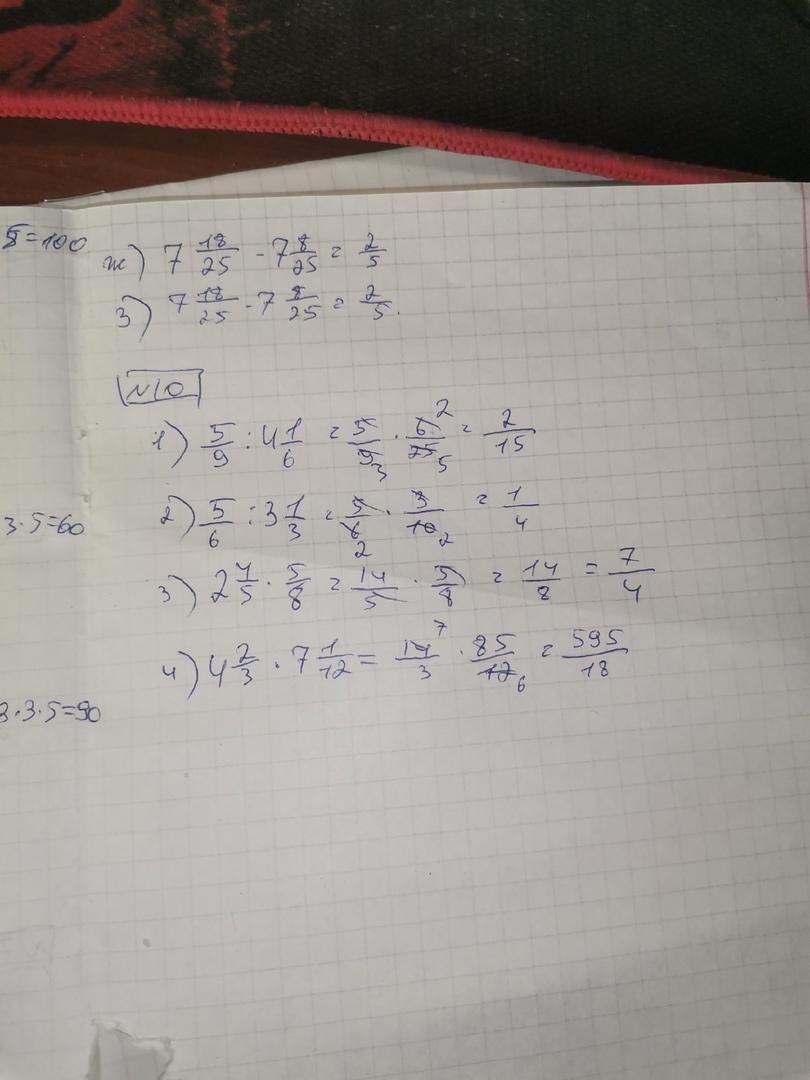 5=100
ж) 7 18/25 - 7 8/25 = 2/5
з) 7 18/25 - 7 8/25 = 2/5.
N10
1) 5/9 : 4 1/6 = 5/9 3 · 6 2/25 5 = 2/15
3·5=60
2) 5/6 : 3 1/3 = 5/6 2 · 3/10 2 = 1/4
3) 2 4/5 · 5/8 = 14/5 · 5/8 = 14/8 = 7/4
4) 4 2/3 · 7 1/12 = 14 7/3 · 85/12 6 = 595/18
3·3·5=90